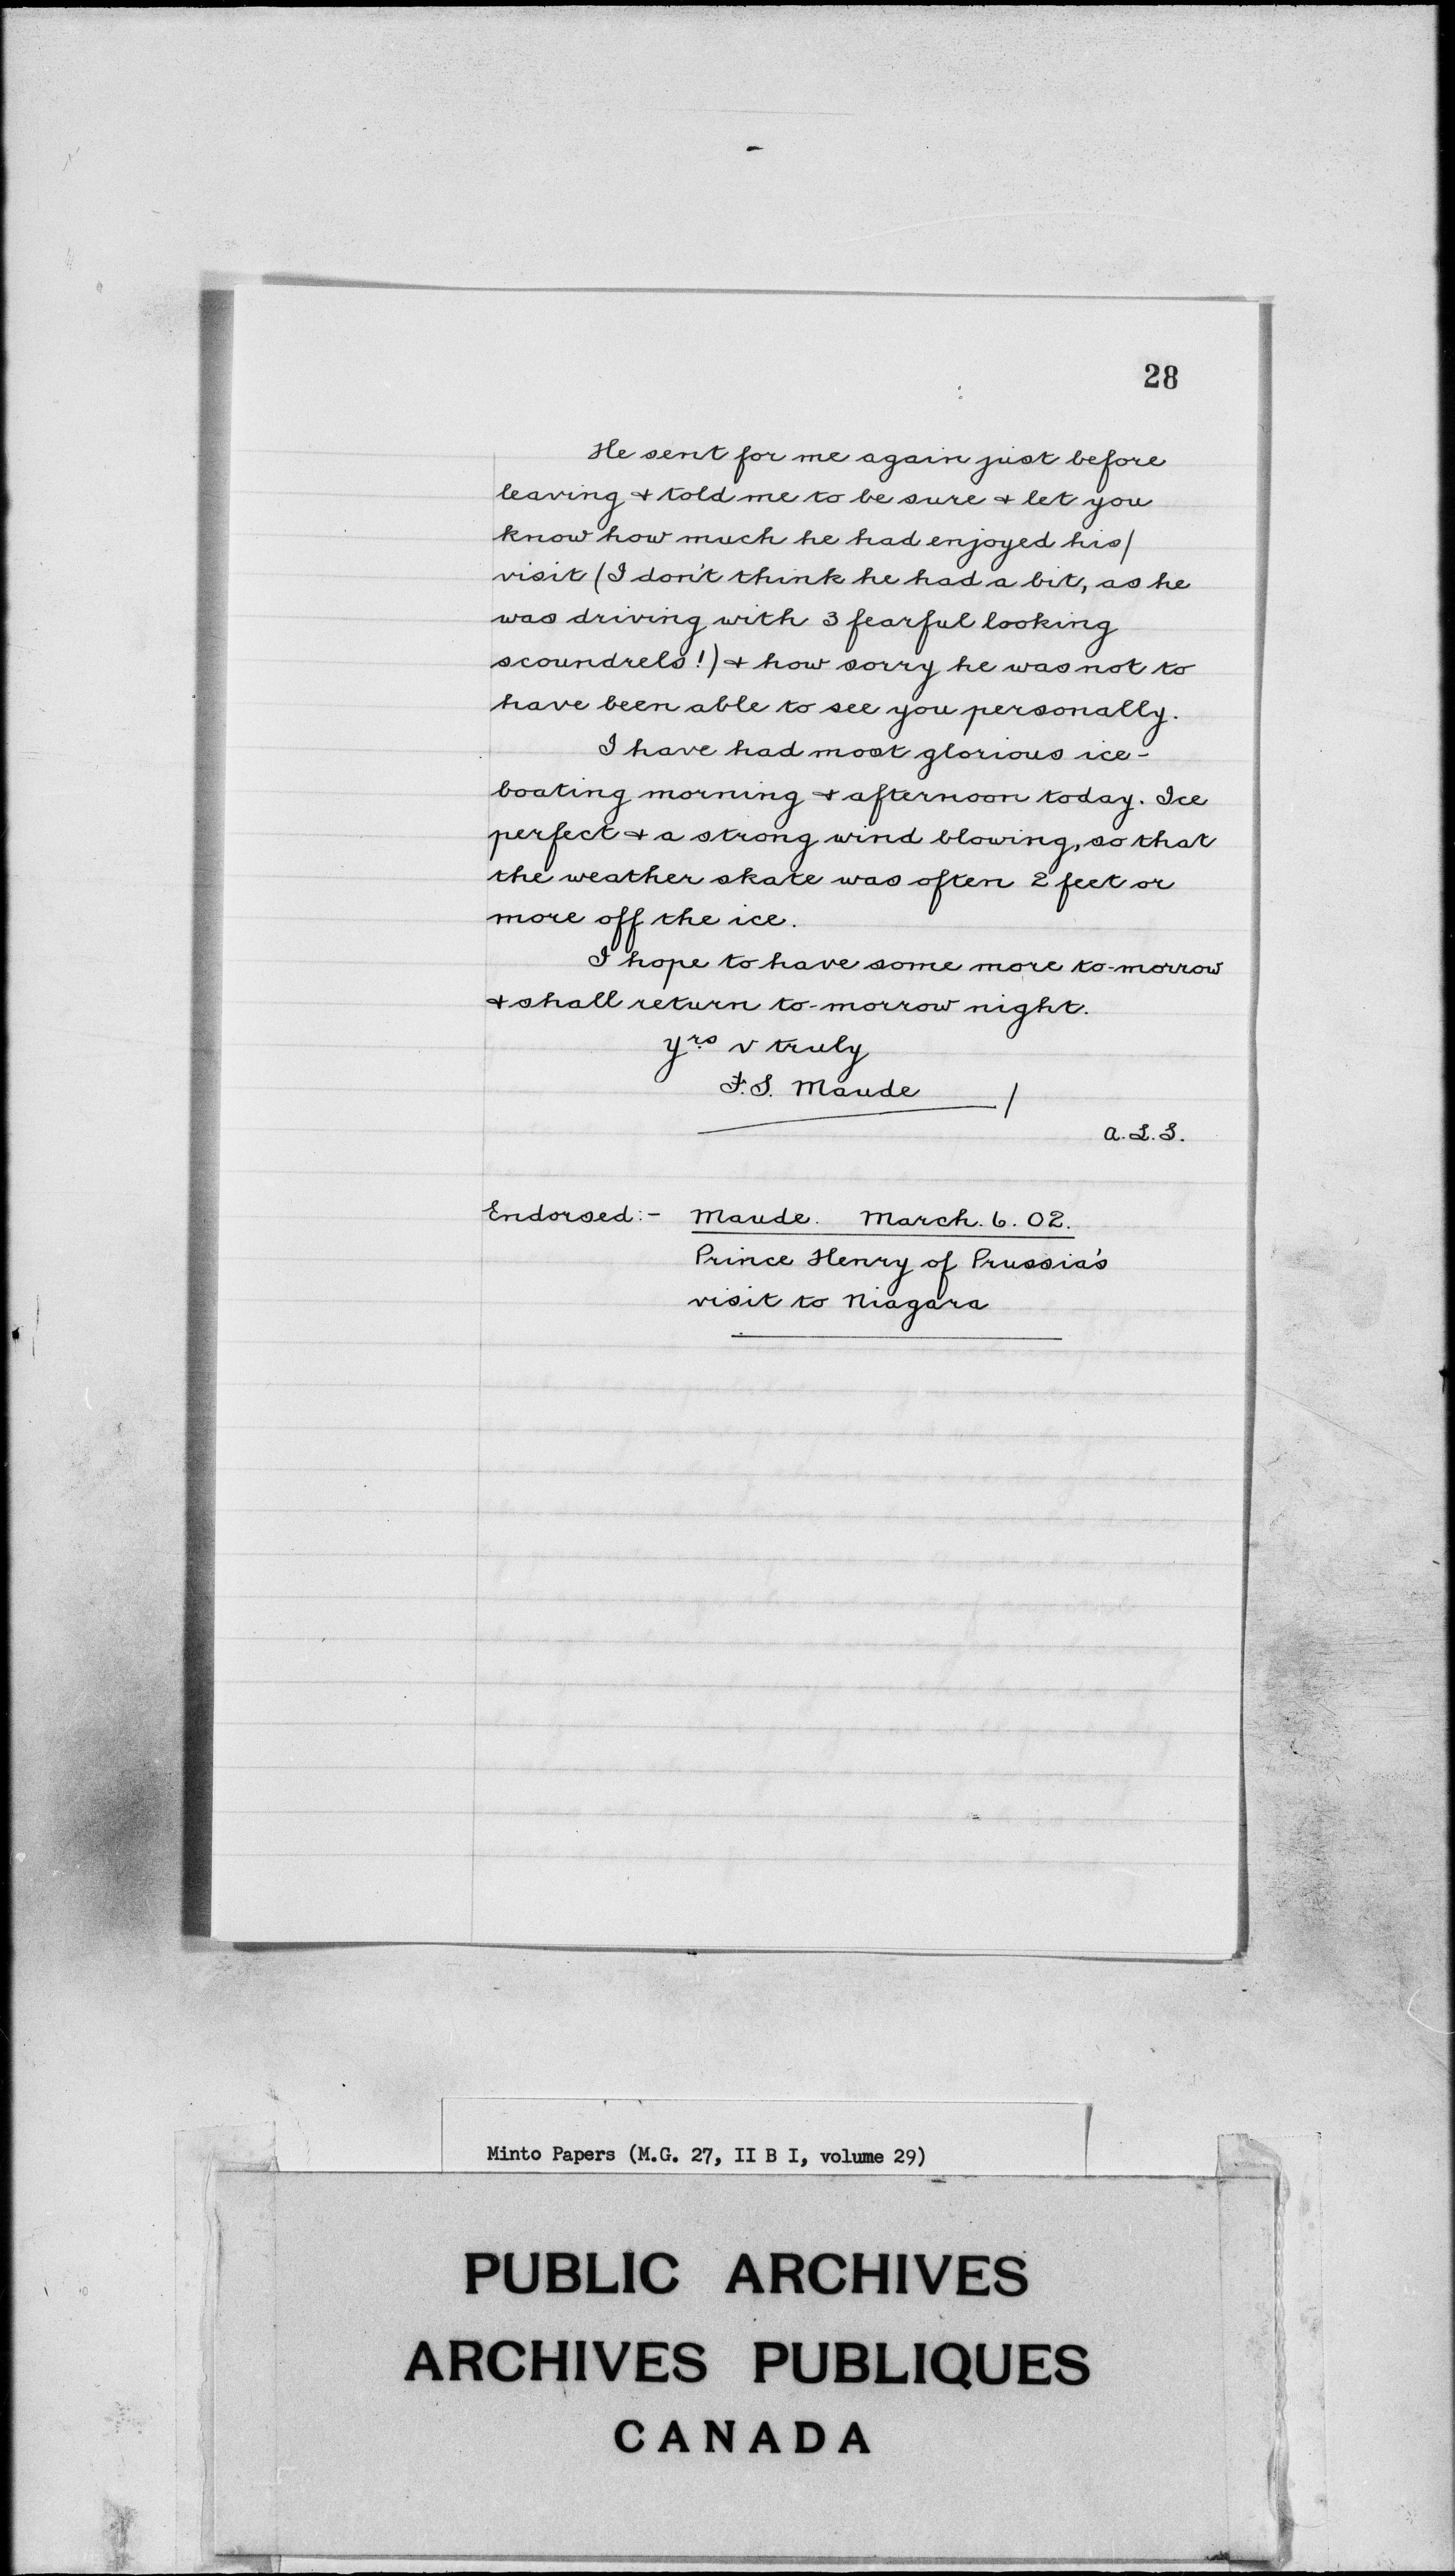 28
He sent for me again just before
leaving & told me to be sure & let you
know how much he had enjoyed his/
visit (I don't think he had a bit, as he
was driving with 3 fearful looking
scoundrels!) & how sorry he was not to
have been able to see you personally.
I have had most glorious ice-
boating morning & afternoon today. Ice
perfect & a strong wind blowing, so that
the weather skate was often 2 feet or
more off the ice.
I hope to have some more to-morrow
& shall return to-morrow night.
yrs v truly
F.S. Maude /
A.L.S.
Endorsed:- Maude. March. 6. 02.
Prince Henry of Prussia's
visit to Niagara
Minto Papers (M.G. 27, II B I, volume 29)
PUBLIC ARCHIVES
ARCHIVES PUBLIQUES
CANADA